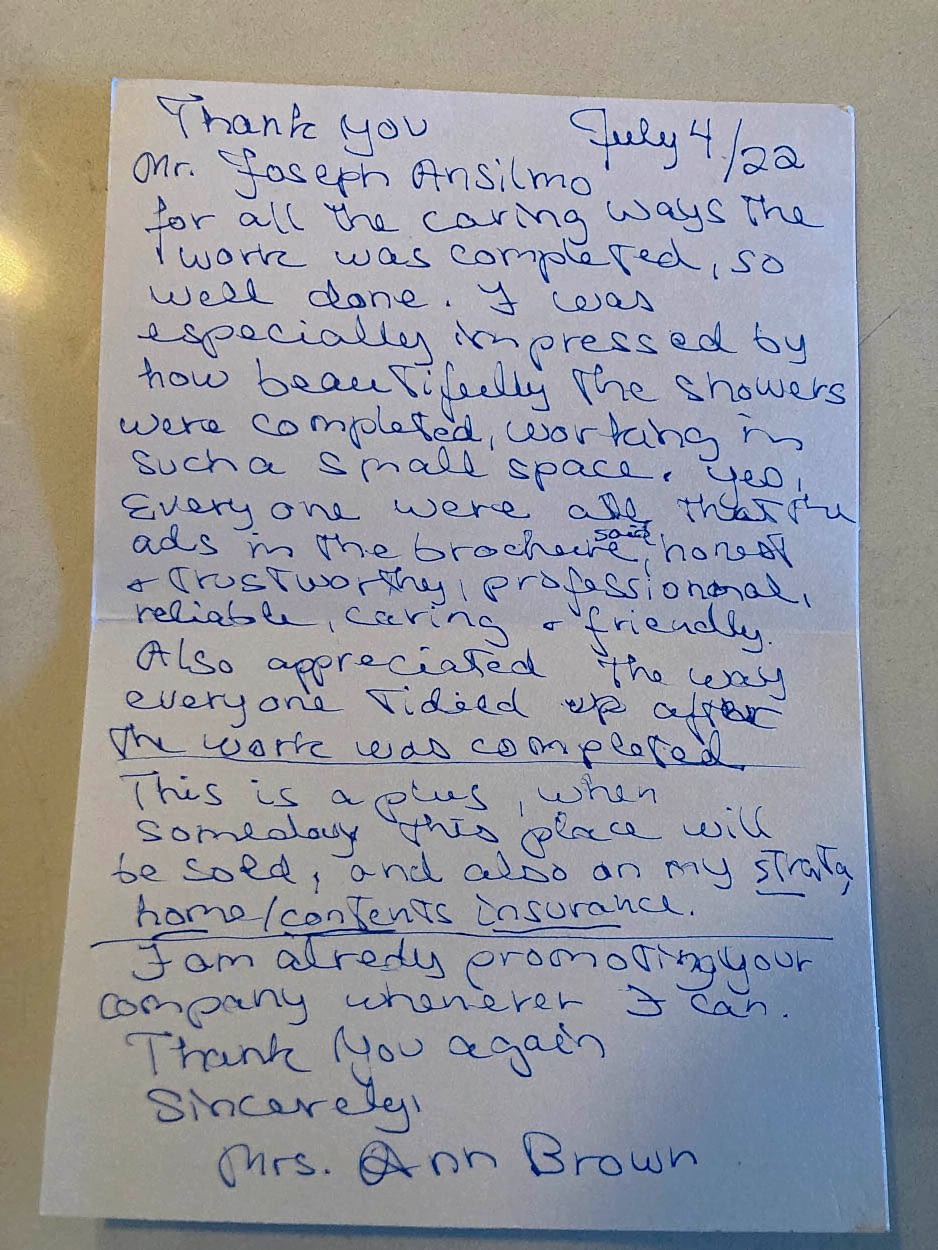 Thank you July 4/22
Mr. Joseph Ansilmo
for all the caring ways the
work was completed, so
well done. I was
especially impressed by
how beautifully the showers
were completed, working in
such a small space. Yes,
Everyone were all that the
ads in the brochure said, honest
& trustworthy, professional,
reliable, caring & friendly.
Also appreciated the way
everyone tidied up after
the work was completed
This is a plus, when
someday this place will
be sold, and also on my strata,
home/contents insurance.
I am alredy promoting your
company whenever I can.
Thank you again
Sincerely,
Mrs. Ann Brown